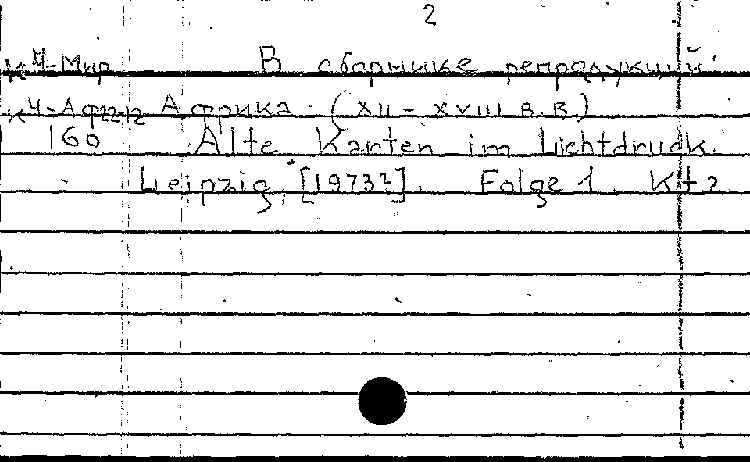 2
К 4-Мир В сборнике репродукций:
К 4-Аф Африка (XII-XVIII в.в.)
160 Alte Karten im Lichtdruck.
Leipzig, [1973?]. Folge 1. Kt 2